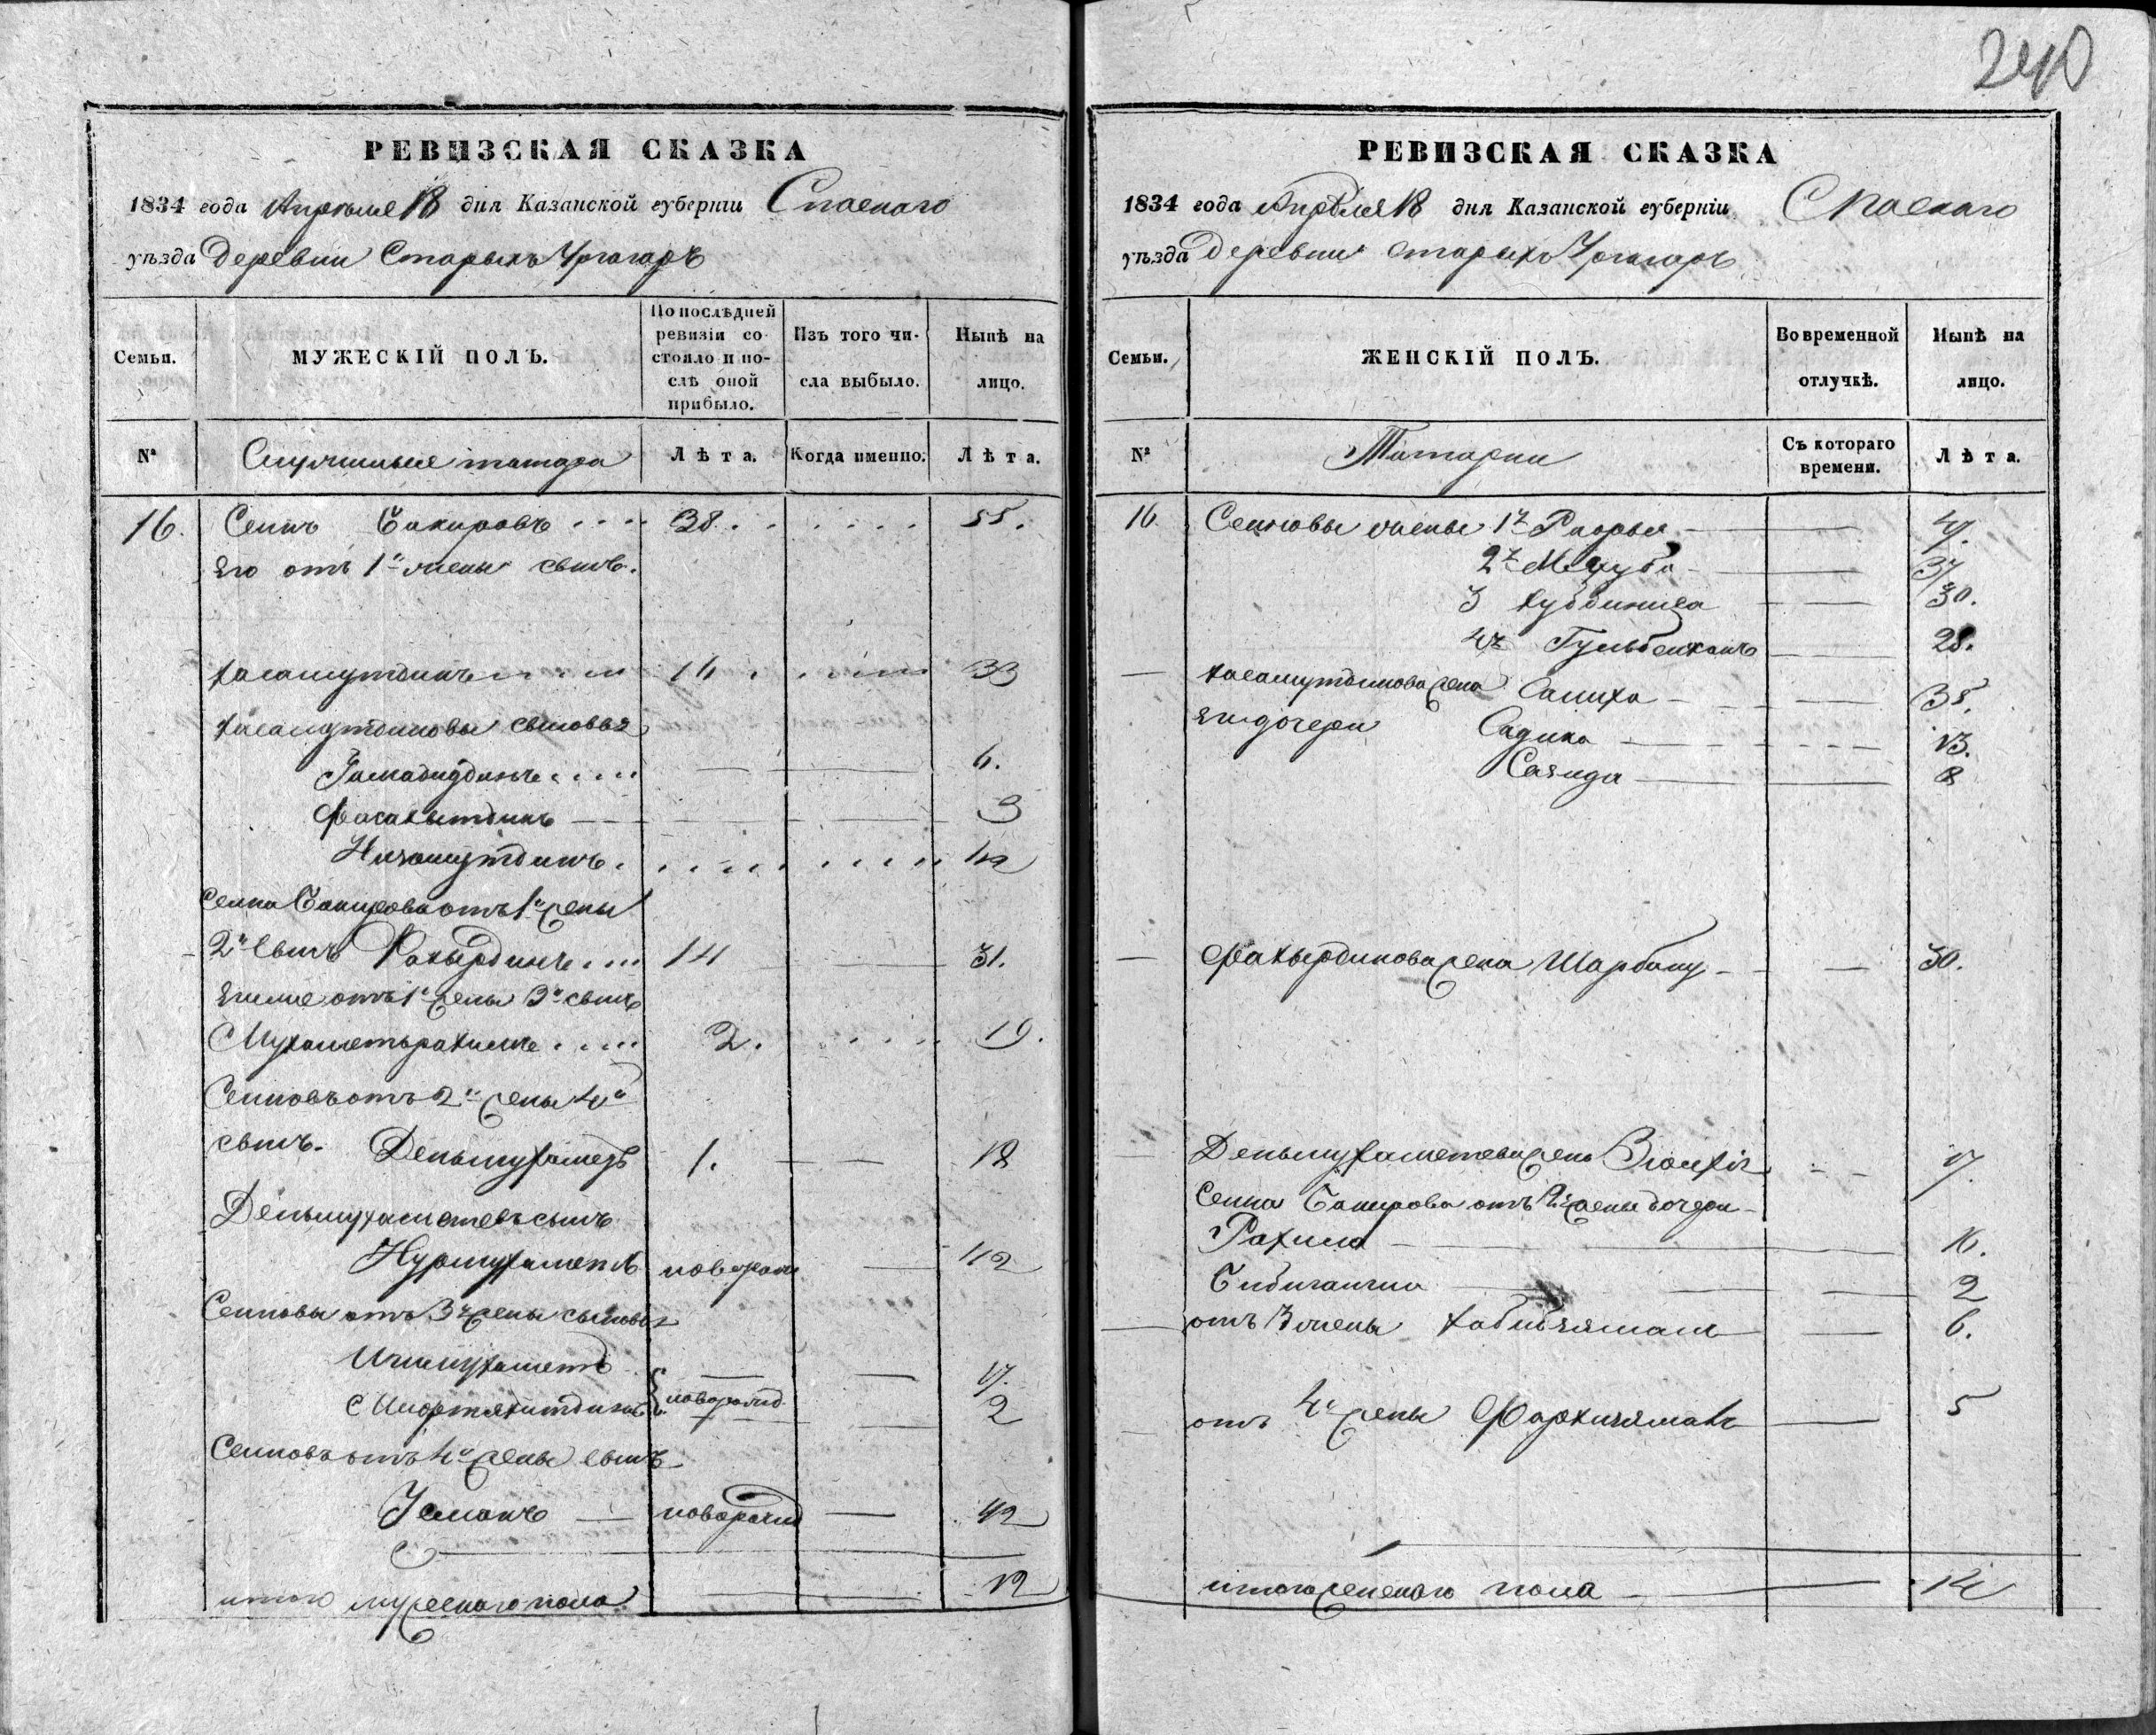 240
РЕВИЗСКАЯ СКАЗКА
1834 года Апреля 18 дня Казанской губерніи Спаскаго
уѣзда Деревни Старыхъ Ургагаръ
Семьи.
МУЖЕСКІЙ ПОЛЪ.
По послѣдней ревизіи состояло и послѣ оной прибыло.
Изъ того числа выбыло.
Нынѣ на лицо.
№
татара
Лѣта.
Когда именно.
Лѣта.
16. Сеинъ Бакировъ 38. 55.
Его от 1й жены сынъ.
Хасамутдинъ 16 33
Хасамутдиновы сыновья
Гимадиддинъ 6.
Фасахытдинъ 3
Низамутдинъ 1/2
Сеина Бакирова отъ 1й жены
2й сынъ Фахырдинъ 14 31.
Его же отъ 1й жены 3й сынъ
Мухаметьрахимъ 2. 19.
Сеиновъ отъ 2й жены 4й
сынъ. Деньмухаметъ 1. 18
Деньмухаметевъ сынъ
Нурмухаметъ новорож 1/2
Сеиновы отъ 3й жены сыновья
Ишмухаметъ 17.
Мифтяхитдинъ новорожд 2
Сеиновъ отъ 4й жены сынъ
Усманъ новорожд 1/2
итого мужескаго пола 12
РЕВИЗСКАЯ СКАЗКА
1834 года Апреля 18 дня Казанской губерніи Спаскаго
уѣзда Деревни Старыхъ Ургагаръ
Семьи.
ЖЕНСКІЙ ПОЛЪ.
Во временной отлучкѣ.
Нынѣ на лицо.
№
Татарки
Съ котораго времени.
Лѣта.
16 Сеиновы жены 1я
2я Махуба 37
3 Хубдиниса 30.
4я Гульбенканъ 28.
Хасамутдинова жена Салиха 35.
Его дочери Садика 13.
Саянда 8
Фахырдинова жена Шарбану 30.
Деньмухаметева жена 17.
Сеина Бакирова отъ 2й жены дочери
Рахима 16.
Бибигайша 2
отъ 3 жены Хабибзямалъ 6.
отъ 4й жены Фархизямалъ 5
итого женскаго пола 14